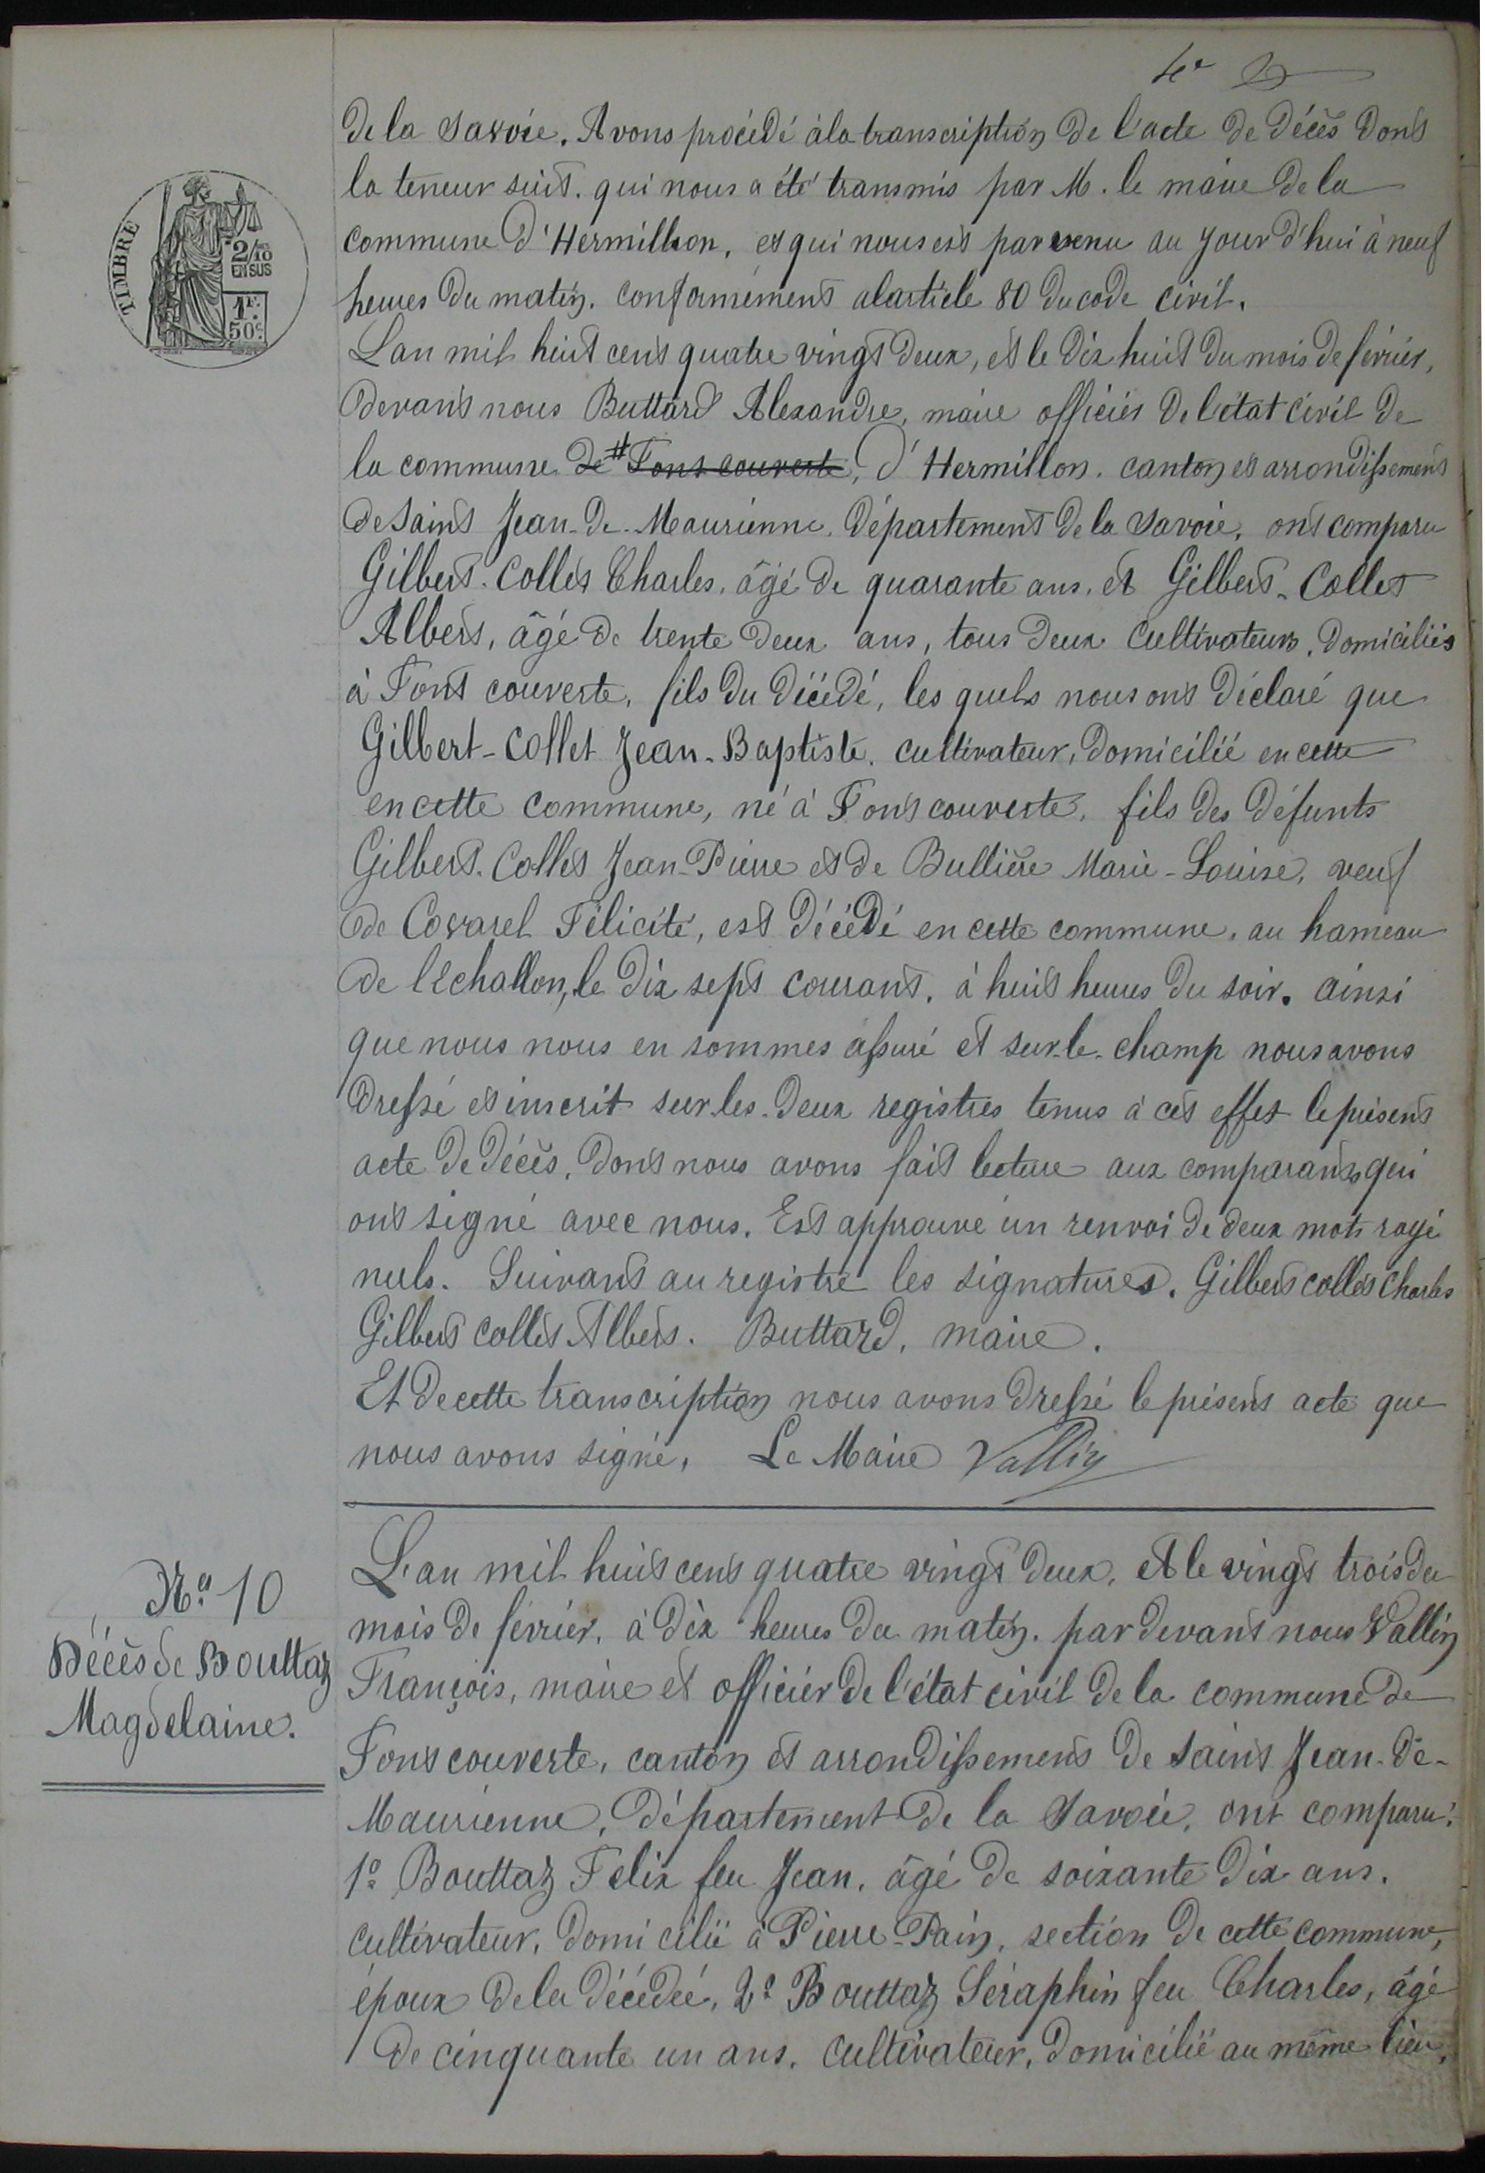 4e
de la Savoie. Avons procédé à la transcription de l'acte de décès dont
la teneur suit. qui nous a été transmis par M. le maire de la
commune d'Hermillon, et qui nous est parvenu au jour d'hui à neuf
heures du matin. conformément à l'article 80 du code civil.
TIMBRE
2/10
EN SUS
1F.
50c.
L'an mil huit cent quatre vingt deux, et le dix huit du mois de février,
devant nous Buttard Alexandre, maire officier de l'état civil de
la commune de # Fontcouverte, d'Hermillon. canton et arrondissement
de Saint Jean-de-Maurienne. département de la Savoie. ont comparu
Gilbert-Collet Charles, âgé de quarante ans, et Gilbert-Collet
Albert, âgé de trente deux ans, tous deux cultivateurs, domiciliés
à Font couverte, fils du décédé, les quels nous ont déclaré que
Gilbert-Collet Jean-Baptiste. cultivateur, domicilié en cette
en cette commune, né à Fontcouverte, fils des défunts
Gilbert-Collet Jean-Pierre et de Bullière Marie-Louise, veuf
de Covarel Félicité, est décédé en cette commune, au hameau
de l'Echallon, le dix sept courant, à huit heures du soir. ainsi
que nous nous en sommes assuré et sur-le-champ nous avons
dressé et inscrit sur les deux registres tenus à cet effet le présent
acte de décès, dont nous avons fait lecture aux comparants qui
ont signé avec nous. Est approuvé un renvoi de deux mots rayé
nuls. Suivant au registre les signatures. Gilbert collet Charles
Gilbert collet Albert. Buttard, maire.
Et de cette transcription nous avons dressé le présent acte que
nous avons signé, Le Maire Vallin
No. 10
Décès de Bouttaz
Magdelaine.
L'an mil huit cent quatre vingt deux, et le vingt trois du
mois de février, à dix heures du matin. par devant nous Vallin
François, maire et officier de l'état civil de la commune de
Fontcouverte, canton et arrondissement de Saint Jean-de-
Maurienne, département de la Savoie, ont comparu:
1o Bouttaz Felix feu Jean, âgé de soixante dix ans.
cultivateur, domicilié à Pierre-Pain, section de cette commune,
époux de la décédée, 2o Bouttaz Séraphin feu Charles, âgé
de cinquante un ans, cultivateur, domicilié au même lieu,